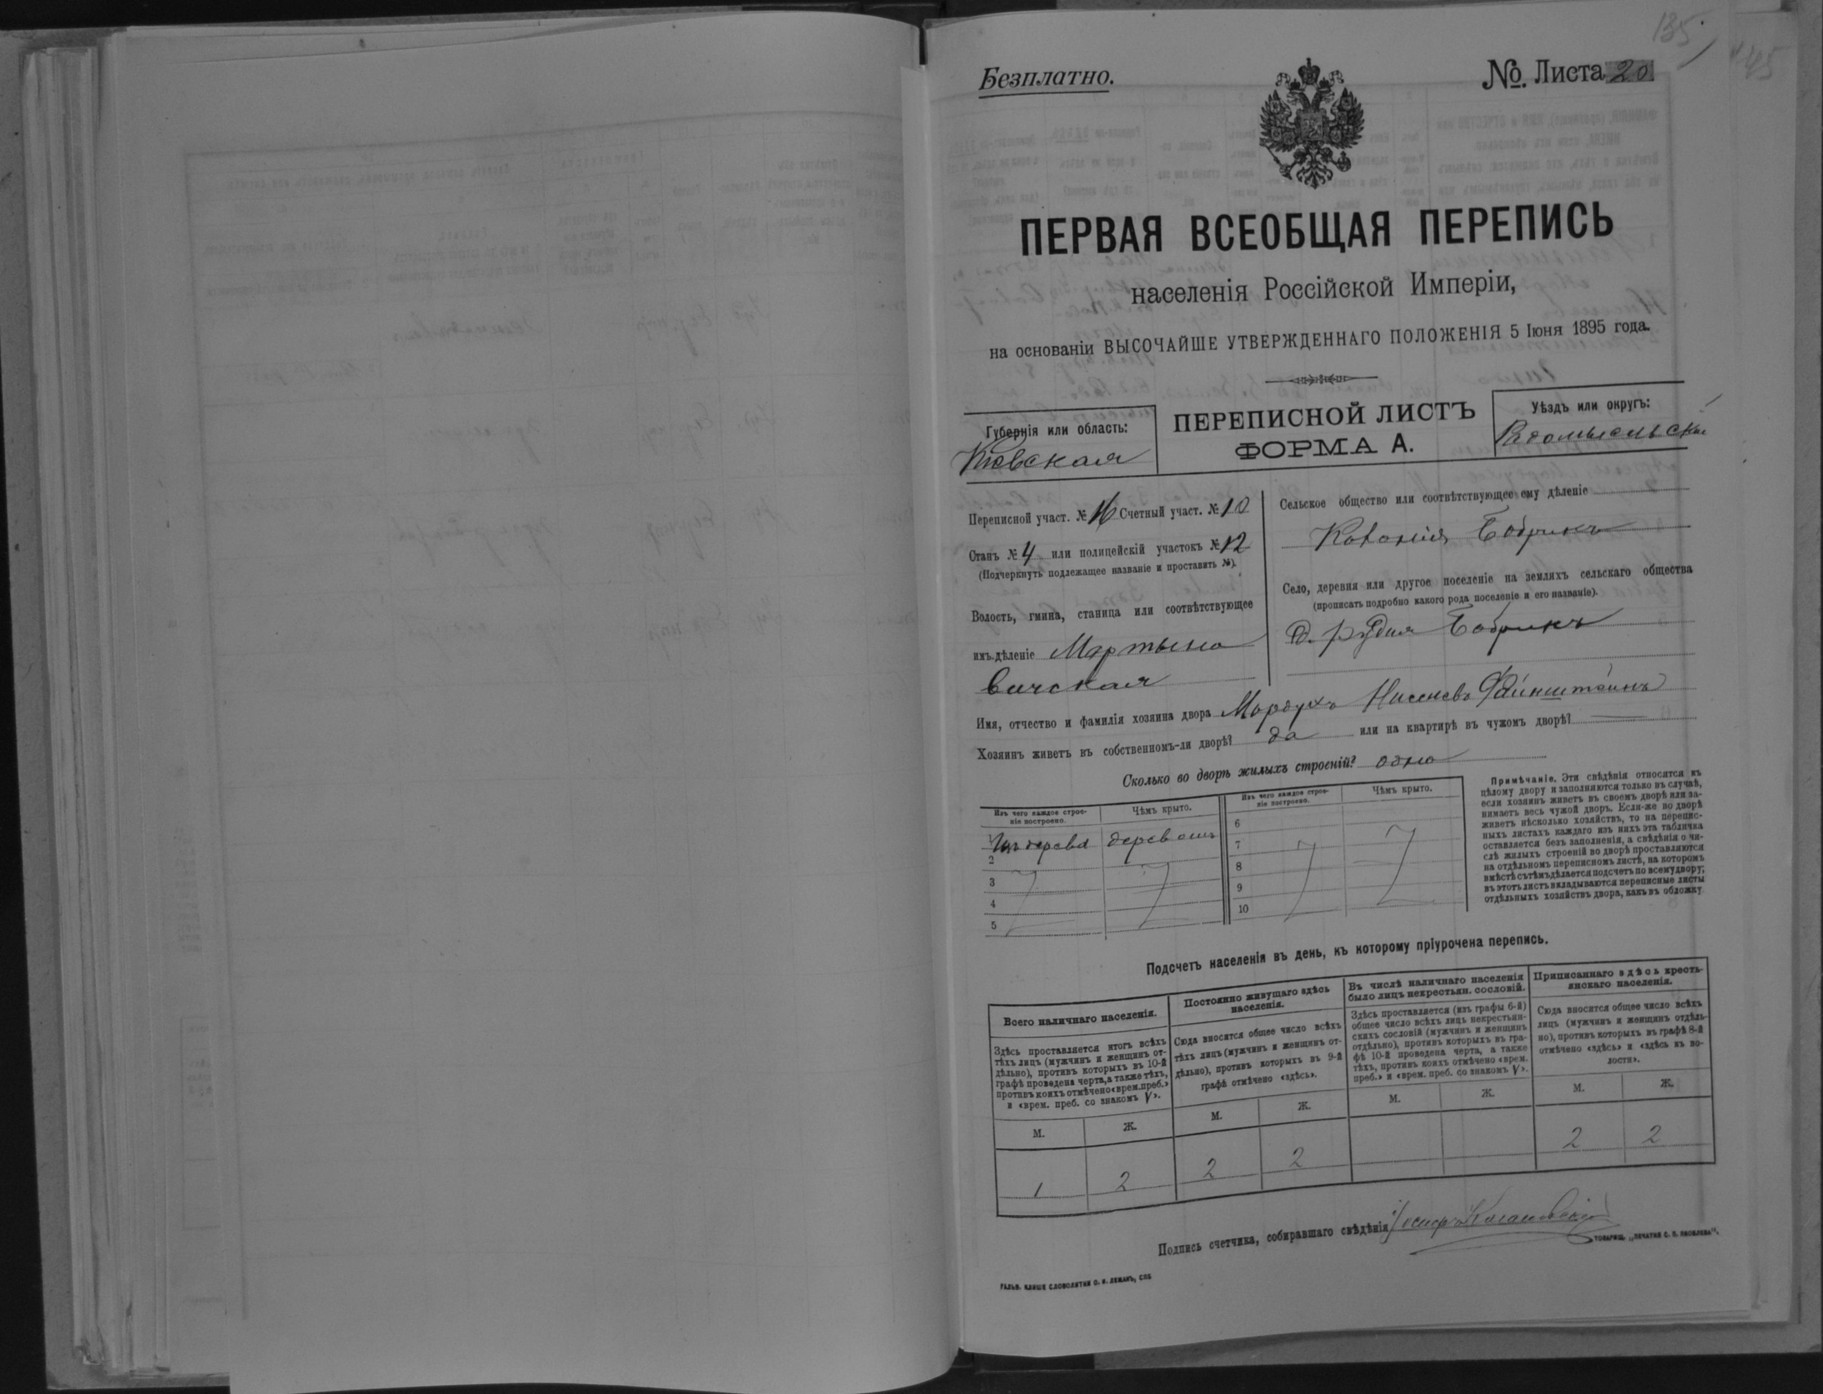 135
Безплатно.
№. Листа 20
ПЕРВАЯ ВСЕОБЩАЯ ПЕРЕПИСЬ
населенія Россійской Имперіи,
на основаніи ВЫСОЧАЙШЕ УТВЕРЖДЕННАГО ПОЛОЖЕНІЯ 5 Іюня 1895 года.
Губернія или область:
Кіевская
ПЕРЕПИСНОЙ ЛИСТЪ
ФОРМА А.
Уѣздъ или округъ:
Радомысльскій
Переписной участ. № 16 Счетный участ. № 10
Станъ № 4 или полицейскій участокъ № 12
(Подчеркнуть подлежащее названіе и проставить №).
Волость, гмина, станица или соотвѣтствующее
имъ дѣленіе Мартыно
вичская
Сельское общество или соотвѣтствующее ему дѣленіе
Колонія Бобрикъ
Село, деревня или другое поселеніе на земляхъ сельскаго общества
(прописать подробно какого рода поселеніе и его названіе).
д. Рудня Бобрикъ
Имя, отчество и фамилія хозяина двора Мордухъ Нисневъ Файнштейнъ
Хозяинъ живетъ въ собственномъ-ли дворѣ? да или на квартирѣ въ чужомъ дворѣ?
Сколько во дворѣ жилыхъ строеній? одно
Изъ чего каждое строе-
ніе построено.
Чѣмъ крыто.
Изъ чего каждое строе-
ніе построено.
Чѣмъ крыто.
1 Изъ дерева деревомъ
2
3
4
5
6
7
8
9
10
Примѣчаніе. Эти свѣдѣнія относятся къ
цѣлому двору и заполняются только въ случаѣ,
если хозяинъ живетъ въ своемъ дворѣ или за-
нимаетъ весь чужой дворъ. Если-же во дворѣ
живетъ нѣсколько хозяйствъ, то на перепис-
ныхъ листахъ каждаго изъ нихъ эта табличка
оставляется безъ заполненія, а свѣдѣнія о чи-
слѣ жилыхъ строеній во дворѣ проставляются
на отдѣльномъ переписномъ листѣ, на которомъ
вмѣстѣ съ тѣмъ дѣлается подсчетъ по всему двору;
въ этотъ листъ вкладываются переписные листы
отдѣльныхъ хозяйствъ двора, какъ въ обложку.
Подсчетъ населенія въ день, къ которому пріурочена перепись.
Всего наличнаго населенія.
Здѣсь проставляется итогъ всѣхъ
тѣхъ лицъ (мужчинъ и женщинъ от-
дѣльно), противъ которыхъ въ 10-й
графѣ проведена черта, а также тѣхъ,
противъ коихъ отмѣчено «врем. преб.»
и «врем. преб. со знакомъ V».
М.
Ж.
1
2
Постоянно живущаго здѣсь
населенія.
Сюда вносится общее число всѣхъ
тѣхъ лицъ (мужчинъ и женщинъ от-
дѣльно), противъ которыхъ въ 9-й
графѣ отмѣчено «здѣсь».
М.
Ж.
2
2
Въ числѣ наличнаго населенія
было лицъ некрестьян. сословій.
Здѣсь проставляется (изъ графы 6-й)
общее число всѣхъ лицъ некрестьян-
скихъ сословій (мужчинъ и женщинъ
отдѣльно), противъ которыхъ въ гра-
фѣ 10-й проведена черта, а также
тѣхъ, противъ коихъ отмѣчено «врем.
преб.» и «врем. преб. со знакомъ V».
М.
Ж.
Приписаннаго здѣсь кресть-
янскаго населенія.
Сюда вносится общее число всѣхъ
лицъ (мужчинъ и женщинъ отдѣль-
но), противъ которыхъ въ графѣ 8-й
отмѣчено «здѣсь» и «здѣсь въ во-
лости».
М.
Ж.
2
2
Подпись счетчика, собиравшаго свѣдѣнія
ТОВАРИЩ. „ПЕЧАТНЯ С. П. ЯКОВЛЕВА“.
ГАЛЬВ. КЛИШЕ СЛОВОЛИТНИ О. И. ЛЕМАНЪ, СПБ